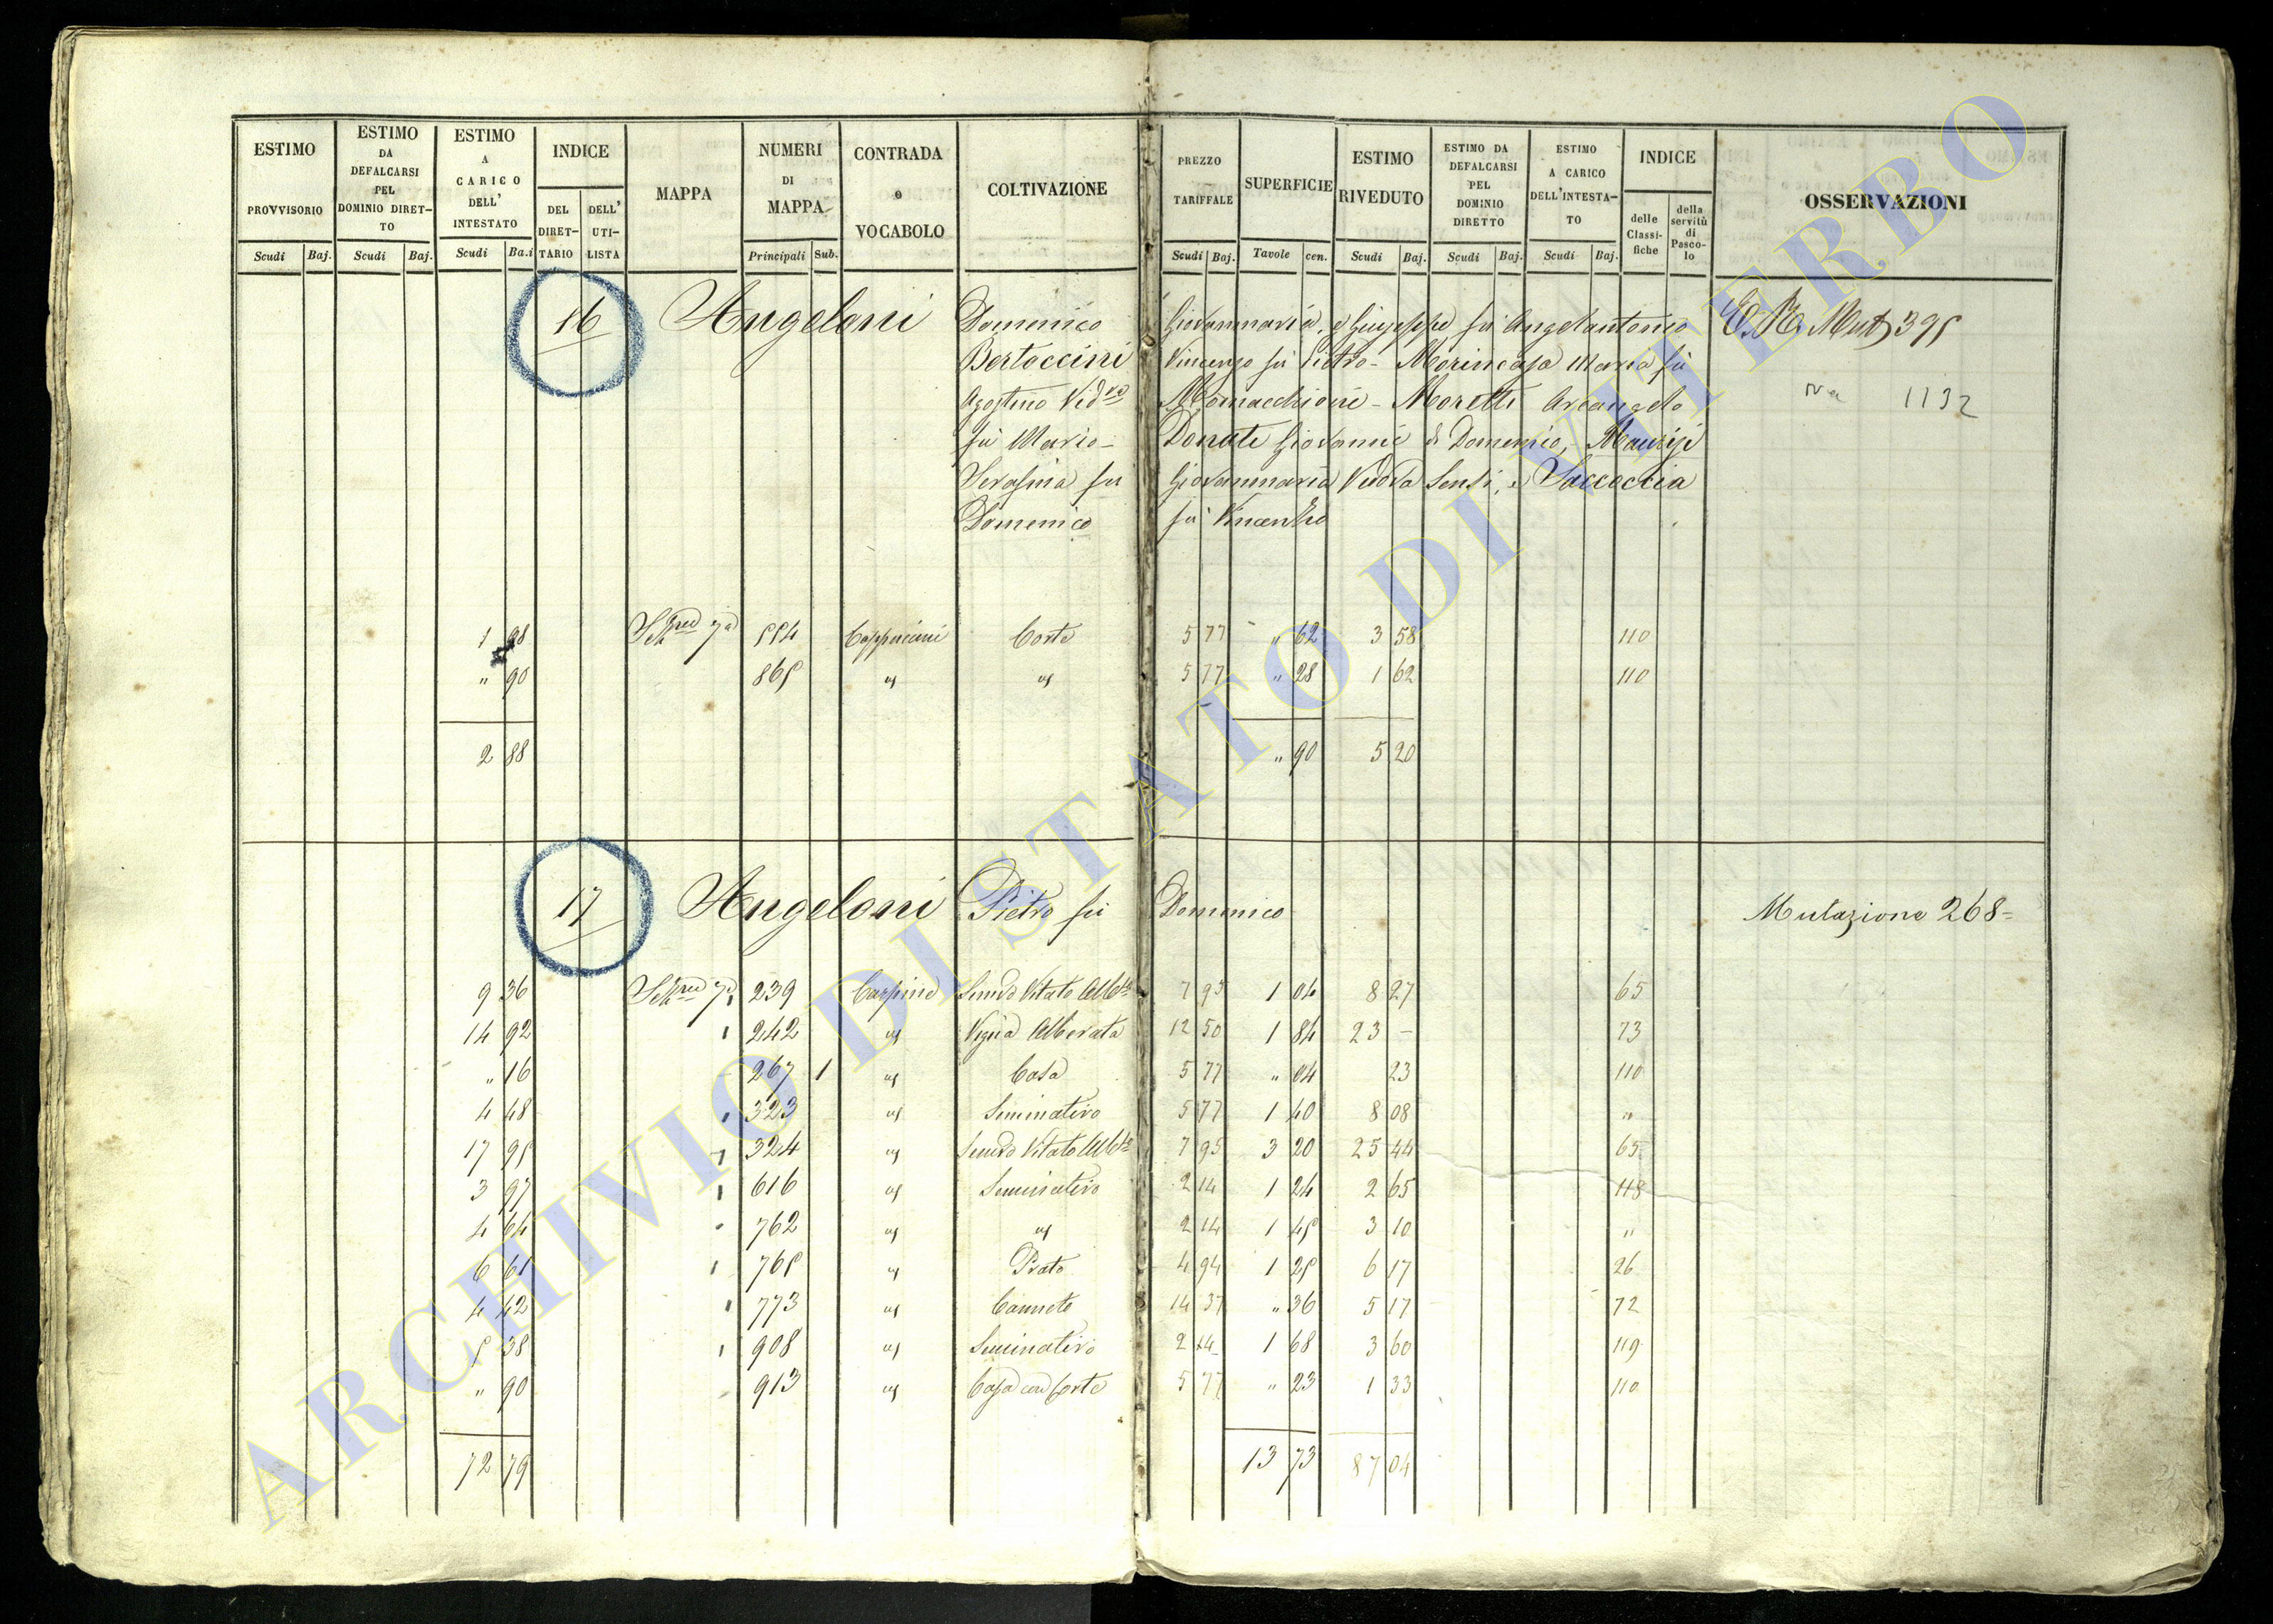 ESTIMO PROVVISORIO Scudi Baj.
ESTIMO DA DEFALCARSI PEL DOMINIO DIRET-TO Scudi Baj.
ESTIMO A CARICO DELL' INTESTATO Scudi Ba.i
INDICE DEL DIRET-TARIO DELL' UTI-LISTA
MAPPA
NUMERI DI MAPPA Principali Sub.
CONTRADA o VOCABOLO
COLTIVAZIONE
PREZZO TARIFFALE Scudi Baj.
SUPERFICIE Tavole cen.
ESTIMO RIVEDUTO Scudi Baj.
ESTIMO DA DEFALCARSI PEL DOMINIO DIRETTO Scudi Baj.
ESTIMO A CARICO DELL'INTESTA-TO Scudi Baj.
INDICE delle Classi-fiche della servitù di Pasco-lo
OSSERVAZIONI
16 Angeloni Domenico Giovanmaria, e Giuseppe fu Angelantonio
Bertoccini Vincenzo fu Pietro - Morincasa Maria fu
Agostino Ved.va - Moretti Arcangelo 1132
fu Mario - Donati Giovanni di Domenico, - Maurizi
Serafina fu Giovanmaria Vedova Sensi, e Saccoccia
Domenico fu Vincenzo
1 98 554 Cappuccini Corte 5 77 " 62 3 58 110
" 90 865 " " 5 77 " 28 1 62 110
2 88 " 90 5 20
17 Angeloni Pietro fu Domenico Mutazione 268=
9 36 239 Carpine Semvo Vitato Albto 7 95 1 04 8 27 65
14 92 242 " Vigna Alberata 12 50 1 84 23 - 73
" 16 267 1 " Casa 5 77 " 04 23 110
4 48 323 " Seminativo 5 77 1 40 8 08 "
17 95 324 " Semvo Vitato Albto 7 95 3 20 25 44 65
3 97 616 " Seminativo 2 14 1 24 2 65 118
4 64 762 " " 2 14 1 45 3 10 "
6 61 765 " Prato 4 94 1 25 6 17 26
4 42 773 " Canneto 14 37 " 36 5 17 72
5 38 908 " Seminativo 2 14 1 68 3 60 119
" 90 913 " Casa con Corte 5 77 " 23 1 33 110
72 79 13 73 87 04
ARCHIVIO DI STATO DI VITERBO